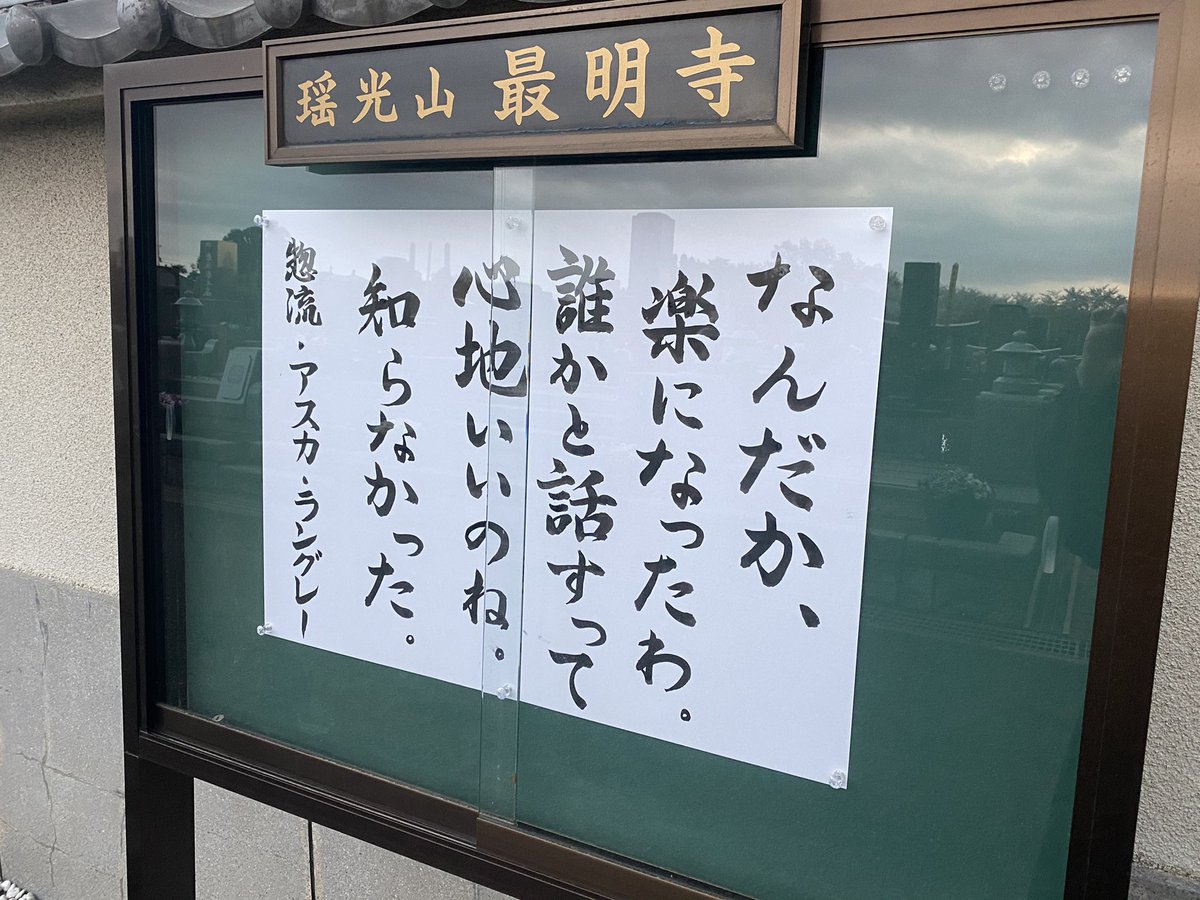 瑶光山 最明寺
なんだか、
楽になったわ。
誰かと話すって
心地いいのね。
知らなかった。
惣流・アスカ・ラングレー